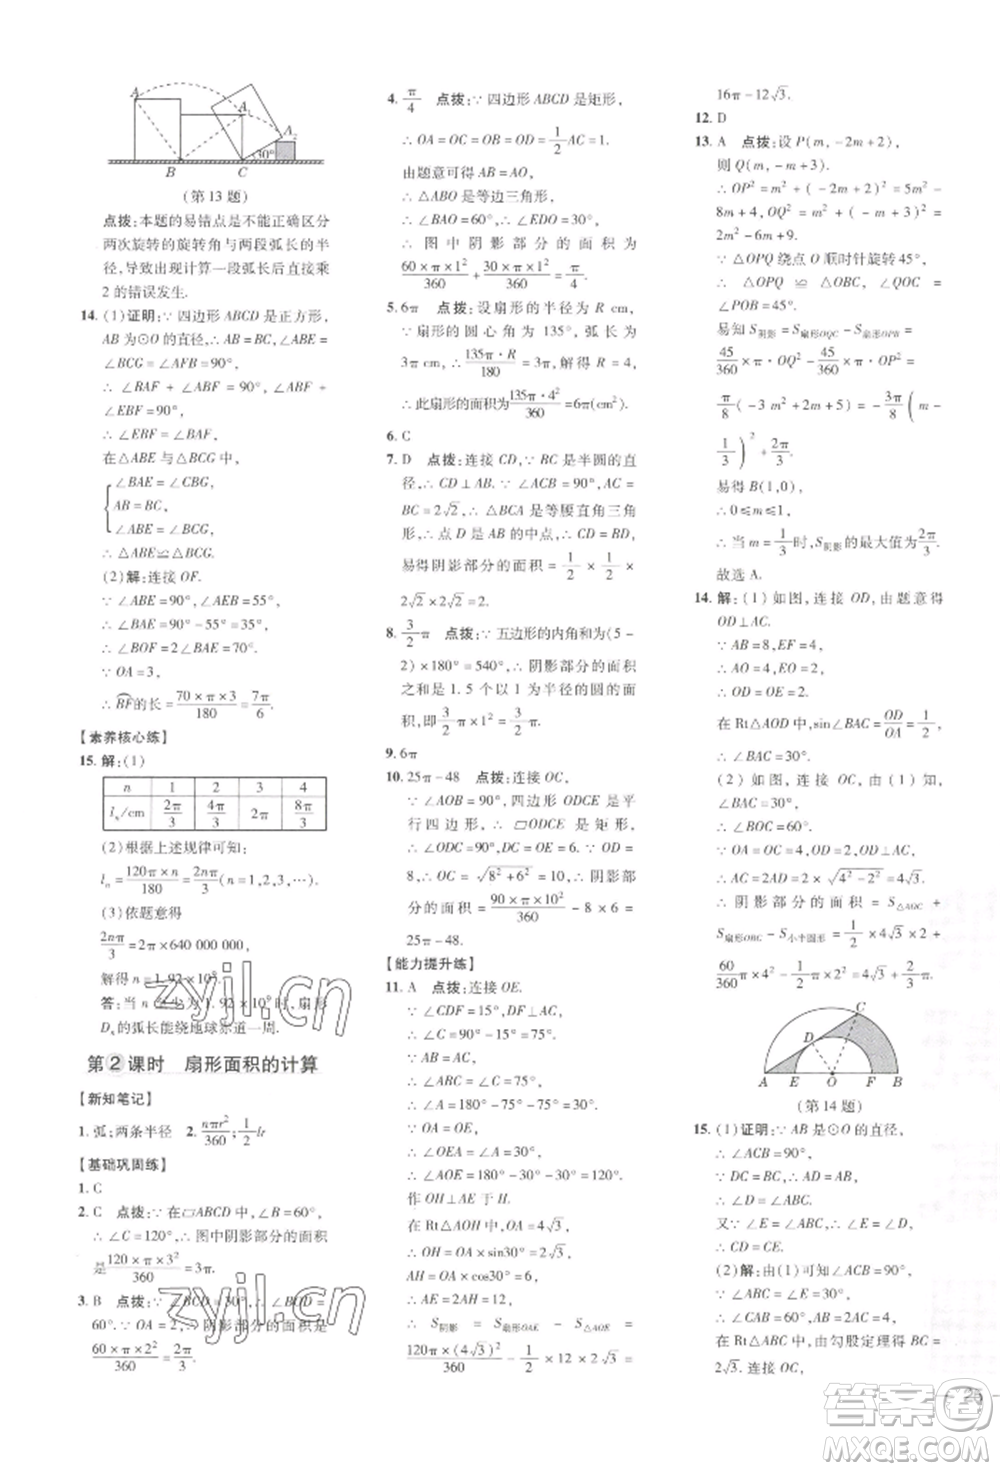 A
A₁
A₂
30°
B
C
(第 13 题)
点拨:本题的易错点是不能正确区分
两次旋转的旋转角与两段弧长的半
径,导致出现计算一段弧长后直接乘
2 的错误发生.
14. (1)证明:∵ 四边形 ABCD 是正方形,
AB 为⊙O 的直径,∴ AB = BC,∠ABE =
∠BCG = ∠AFB = 90°,
∴ ∠BAF + ∠ABF = 90°, ∠ABF +
∠EBF = 90°.
∴ ∠EBF = ∠BAF,
在△ABE 与△BCG 中,
∠BAE = ∠CBG,
AB = BC,
∠ABE = ∠BCG,
∴ △ABE≌△BCG.
(2)解:连接 OF.
∵ ∠ABE = 90°,∠AEB = 55°,
∴ ∠BAE = 90° - 55° = 35°,
∴ ∠BOF = 2∠BAE = 70°.
∵ OA = 3,
∴ BF的长 = 70 × π × 3/180 = 7π/6.
【素养核心练】
15. 解:(1)
n 1 2 3 4
lₙ/cm 2π/3 4π/3 2π 8π/3
(2)根据上述规律可知:
lₙ = 120π × n/180 = 2nπ/3 (n = 1,2,3,…)
(3)依题意得
2nπ/3 = 2π × 640 000 000,
解得 n = 1.92 × 10⁹.
答:当 n 至少为 1.92 × 10⁹ 时,扇形
Dₙ 的弧长能绕地球赤道一周.
第2课时 扇形面积的计算
【新知笔记】
1. 弧;两条半径 2. nπr²/360; 1/2 lr
【基础巩固练】
1. C
2. C 点拨:∵ 在▱ABCD 中,∠B = 60°,
∴ ∠C = 120°,∴ 图中阴影部分的面积
是 120 × π × 3²/360 = 3π.
3. B 点拨:∵ ∠BCD = 30°,∴ ∠BOD =
60°. ∵ OA = 2,∴ 阴影部分的面积是
60 × π × 2²/360 = 2π/3.
4. π/4 点拨:∵ 四边形 ABCD 是矩形,
∴ OA = OC = OB = OD = 1/2 AC = 1.
由题意可得 AB = AO,
∴ △ABO 是等边三角形,
∴ ∠BAO = 60°,∴ ∠EDO = 30°,
∴ 图中阴影部分的面积为
60 × π × 1²/360 + 30 × π × 1²/360 = π/4.
5. 6π 点拨:设扇形的半径为 R cm,
∵ 扇形的圆心角为 135°,弧长为
3π cm,∴ 135π · R/180 = 3π,解得 R = 4,
∴ 此扇形的面积为 135π · 4²/360 = 6π(cm²).
6. C
7. D 点拨:连接 CD,∵ BC 是半圆的直
径,∴ ∠CDB = 90°,∵ ∠ACB = 90°,AC =
BC = 2√2,∴ △BCA 是等腰直角三角
形,∴ 点 D 是 AB 的中点,∴ CD = BD,
易得阴影部分的面积 = 1/2 × 1/2 × 2√2 ×
2√2 = 2.
8. 3/2 π 点拨:∵ 五边形的内角和为(5 -
2) × 180° = 540°,∴ 阴影部分的面积
之和是 1.5 个以 1 为半径的圆的面
积,即 3/2 π × 1² = 3/2 π.
9. 6π
10. 25π - 48 点拨:连接 OC,
∵ ∠AOB = 90°,四边形 ODCE 是平
行四边形,∴ ▱ODCE 是矩形,
∴ ∠ODC = 90°. ∵ OD = 8,OE = 6,
∴ OC = √8² + 6² = 10,∴ 阴影部
分的面积 = 90 × π × 10²/360 - 8 × 6 =
25π - 48.
【能力提升练】
11. A 点拨:连接 OE.
∵ ∠CDF = 15°,DF⊥AC,
∴ ∠C = 90° - 15° = 75°.
∵ AB = AC,
∴ ∠ABC = ∠C = 75°,
∴ ∠BAC = 180° - 75° - 75° = 30°.
∵ OA = OE,
∴ ∠OEA = ∠BAC = 30°,
∴ ∠AOE = 180° - 30° - 30° = 120°.
作 OH⊥AE 于 H.
在 Rt△AOH 中,OA = 4√3,
∴ OH = OA × sin30° = 2√3,
AH = OA × cos30° = 6,
∴ AE = 2AH = 12,
∴ S阴影 = S扇形OAE - S△AOE =
120π × (4√3)²/360 - 1/2 × 12 × 2√3 =
16π - 12√3.
12. D
13. A 点拨:设 P(m, -2m + 2),
则 Q(m, -m + 3).
∴ OP² = m² + (-2m + 2)² = 5m² -
8m + 4,OQ² = m² + (-m + 3)² =
2m² - 6m + 9.
∵ △OPQ 绕点 O 顺时针旋转 45°,
∴ △OPQ ≌ △OBC, ∠QOC =
∠POB = 45°.
易知 S阴影 = S扇形OQC - S扇形OPB =
45/360 × π · OQ² - 45/360 × π · OP² =
π/8 (-3m² + 2m + 5) = -3π/8 (m -
1/3)² + 2π/3.
易得 B(1,0),
∵ 0≤m≤1,
∴ 当 m = 1/3 时,S阴影的最大值为 2π/3.
故选 A.
14. 解:(1)如图,连接 OD,由题意得
OD⊥AC.
∵ AB = 8,EF = 4,
∴ AO = 4,EO = 2,
∴ OD = OE = 2,
在 Rt△AOD 中,sin∠BAC = OD/OA = 1/2,
∴ ∠BAC = 30°.
(2) 如图,连接 OC,由(1)知,
∠BAC = 30°.
∴ ∠BOC = 60°.
∵ OA = OC = 4,OD⊥AC,
∴ AC = 2AD = 2 × √4² - 2² = 4√3.
∴ 阴影部分的面积 = S△AOC +
S扇形OBC - S小半圆O = 1/2 × 4√3 × 2 +
60/360 π × 4² - 1/2 π × 2² = 4√3 + 2π/3.
C
D
A E O F B
(第 14 题)
15. (1)证明:∵ AB 是⊙O 的直径,
∴ ∠ACB = 90°,
∵ DC = BC,∴ AD = AB,
∴ ∠D = ∠ABC.
又∵ ∠E = ∠ABC,
∴ ∠E = ∠D,∴ CD = CE.
(2)解:由(1)可知∠ACB = 90°,
∵ ∠ABC = ∠E = 30°,
∴ ∠CAB = 60°,AB = 2AC = 4,在
Rt△ABC 中,由勾股定理得 BC =
2√3. 连接 OC,
zyjl.cn
zyjl.cn
25
答案圈
MXQE.COM